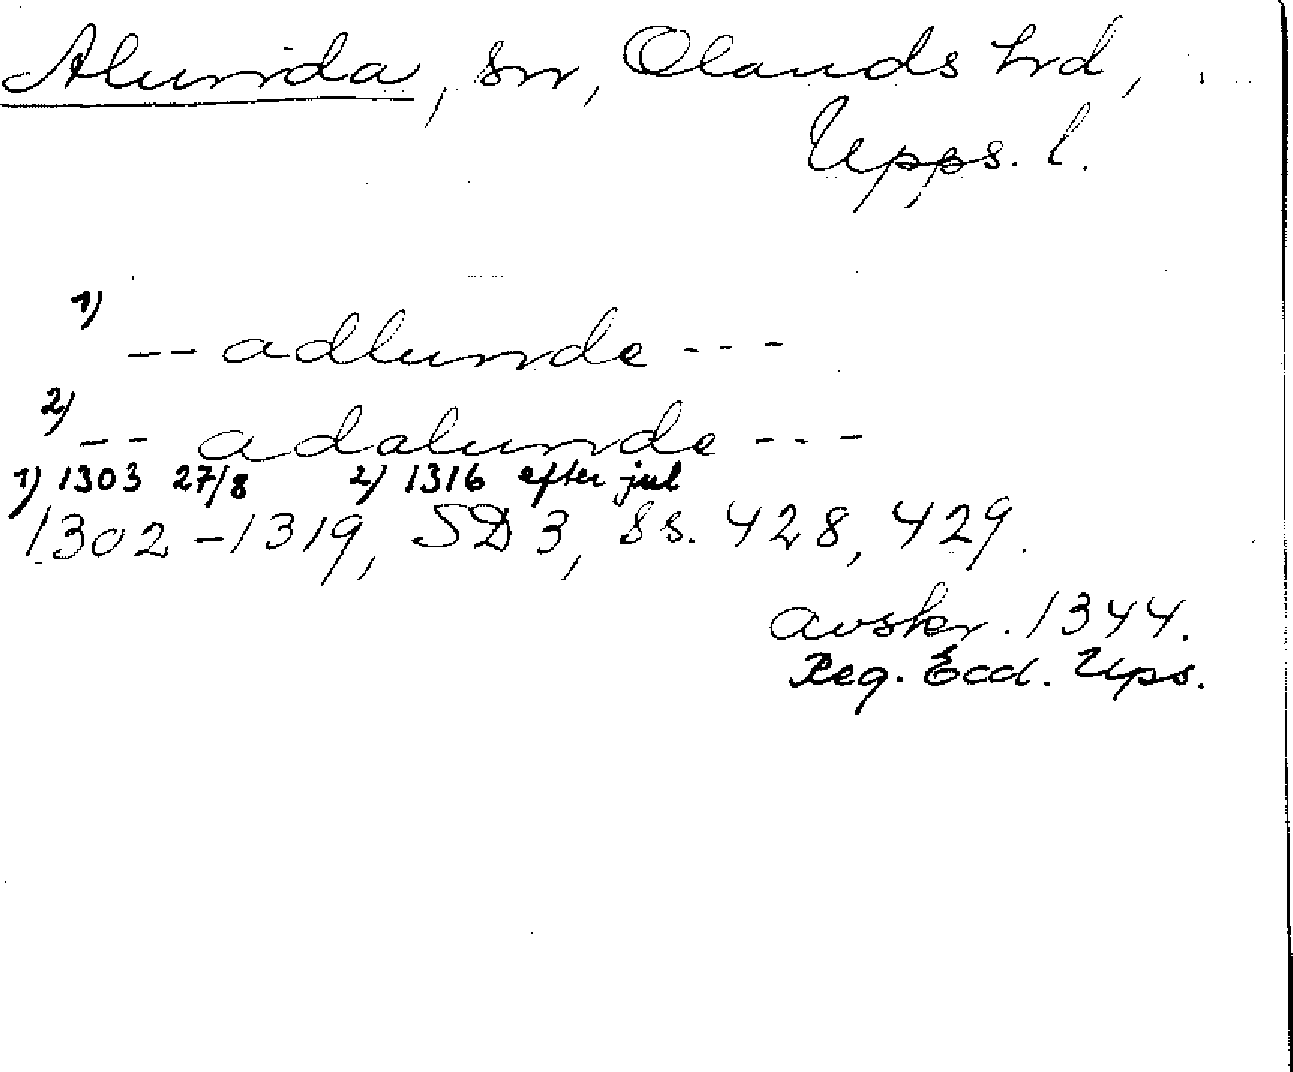 Alunda, sn, Olands hd,
Upps. l.
1) -- adlunde ---
2) -- adalunde ---
1) 1303 27/8 2) 1316 efter jul
1302-1319, SD 3, ss. 428, 429.
avskr. 1344.
Reg. Eccl. Ups.